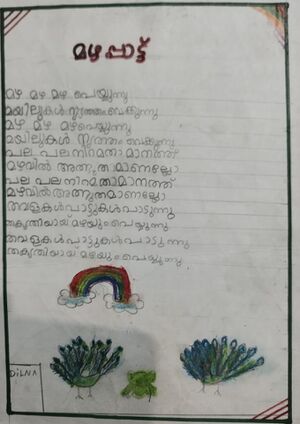 മഴപ്പാട്ട്
മഴ മഴ മഴ പെയ്യുന്നു
മയിലുകൾ നൃത്തം വെക്കുന്നു
മഴ മഴ മഴപെയ്യുന്നു
മയിലുകൾ നൃത്തം വെക്കുന്നു
പല പല നിറമതാ മാനത്ത്
മഴവിൽ അത്ഭുതമാണല്ലോ
പല പല നിറമതാമാനത്ത്
മഴവിൽ അത്ഭുതമാണല്ലോ
തവളകൾപാട്ടുകൾപാടുന്നു
തകൃതിയായ് മഴയും പെയ്യുന്നു
തവളകൾപാട്ടുകൾപാടുന്നു
തകൃതിയായ് മഴയും പെയ്യുന്നു
DiLNA